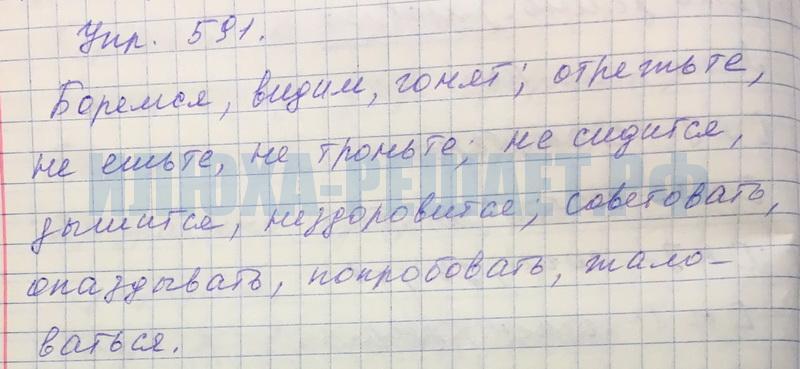 Упр. 591.
Боремся, видим, гонят; отрежьте,
не ешьте, не троньте; не сидится,
ИЛЮХА-РЕШАЕТ.РФ
дышится, нездоровится; советовать,
опаздывать, попробовать, жало-
ваться.